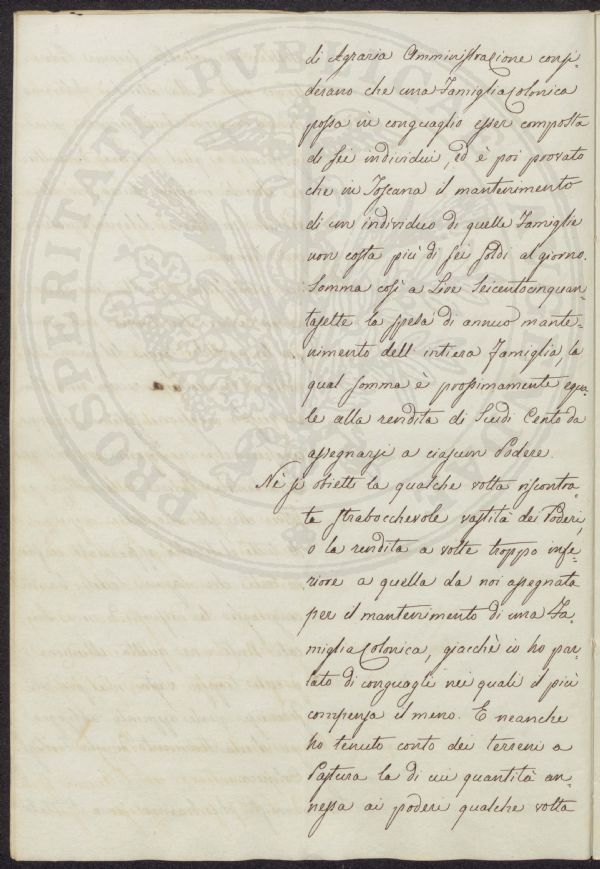 di Agraria Amministrazione consi-
derano che una Famiglia Colonica
possa in conguaglio esser composta
di sei individui, ed è poi provato
che in Toscana il mantenimento
di un individuo di quelle Famiglie
non costa più di sei soldi al giorno.
Somma così a Lire Seicentocinquan-
tasette la spesa di annuo mante-
nimento dell'intiera famiglia, la
qual somma è prossimamente egua-
le alla rendita di Scudi Cento da
assegnarsi a ciascun Podere.
Nè si obietti la qualche volta riscontra-
ta strabocchevole vastità dei Poderi,
o la rendita a volte troppo infe-
riore a quella da noi assegnata
per il mantenimento di una Fa-
miglia Colonica, giacchè io ho par-
lato di conguagli nei quali il più
compensa il meno. E neanche
ho tenuto conto dei terreni a
Pastura la di cui quantità an-
nessa ai poderi qualche volta
PROSPERITATI PUBLICAE